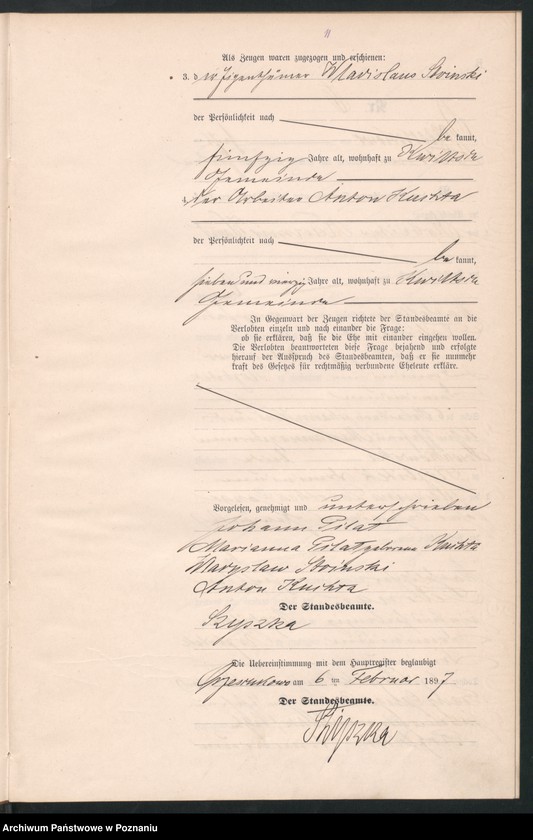 Als Zeugen waren zugezogen und erschienen:
3. der Eigenthümer Wladislaus Stoinski
der Persönlichkeit nach
be kannt,
fünfzig Jahre alt, wohnhaft zu
Gemeinde
4. der Arbeiter Anton Kuchta
der Persönlichkeit nach
be kannt,
sieben und vierzig Jahre alt, wohnhaft zu
Gemeinde
In Gegenwart der Zeugen richtete der Standesbeamte an die
Verlobten einzeln und nach einander die Frage:
ob sie erklären, daß sie die Ehe mit einander eingehen wollen.
Die Verlobten beantworteten diese Frage bejahend und erfolgte
hierauf der Ausspruch des Standesbeamten, daß er sie nunmehr
kraft des Gesetzes für rechtmäßig verbundene Eheleute erkläre.
Vorgelesen, genehmigt und unterschrieben
Johann Pilat
Marianna Pilat geborene Kuchta
Wladyslaw Stoinski
Anton Kuchta
Der Standesbeamte.
Die Uebereinstimmung mit dem Hauptregister beglaubigt
am 6 ten Februar 1897
Der Standesbeamte.
Archiwum Państwowe w Poznaniu